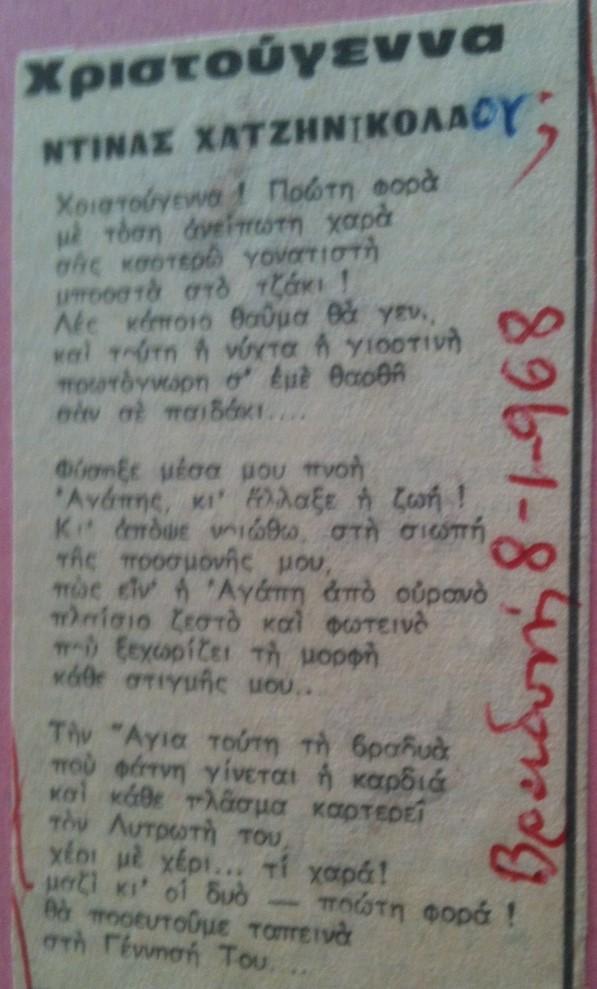 Χριστούγεννα
ΝΤΙΝΑΣ ΧΑΤΖΗΝΙΚΟΛΑΟΥ
Χριστούγεννα ! Πρώτη φορὰ
μὲ τόση ἀνείπωτη χαρὰ
σᾶς καρτερῶ γονατιστὴ
μπροστὰ στὸ τζάκι !
Λὲς κάποιο θαῦμα θὰ γενῆ,
καὶ τούτη ἡ νύχτα ἡ γιορτινὴ
πρωτόγνωρη σ' ἐμὲ θαρθῆ
σὰν σὲ παιδάκι....
Φύσηξε μέσα μου πνοὴ
'Αγάπης, κι' ἄλλαξε ἡ ζωή !
Κι' ἀπόψε νοιώθω, στὴ σιωπή
τῆς προσμονῆς μου,
πὼς εἶν' ἡ 'Αγάπη ἀπὸ οὐρανὸ
πλαίσιο ζεστὸ καὶ φωτεινὸ
ποὺ ξεχωρίζει τὴ μορφὴ
κάθε στιγμῆς μου..
Τὴν Ἅγια τούτη τὴ βραδυὰ
ποὺ φάτνη γίνεται ἡ καρδιά
καὶ κάθε πλᾶσμα καρτερεῖ
τὸν Λυτρωτὴ του,
χέρι μὲ χέρι... τί χαρά!
μαζὶ κι' οἱ δυὸ — πρώτη φορά !
θὰ πορευτοῦμε ταπεινὰ
στὴ Γέννησή Του...
8-1-968